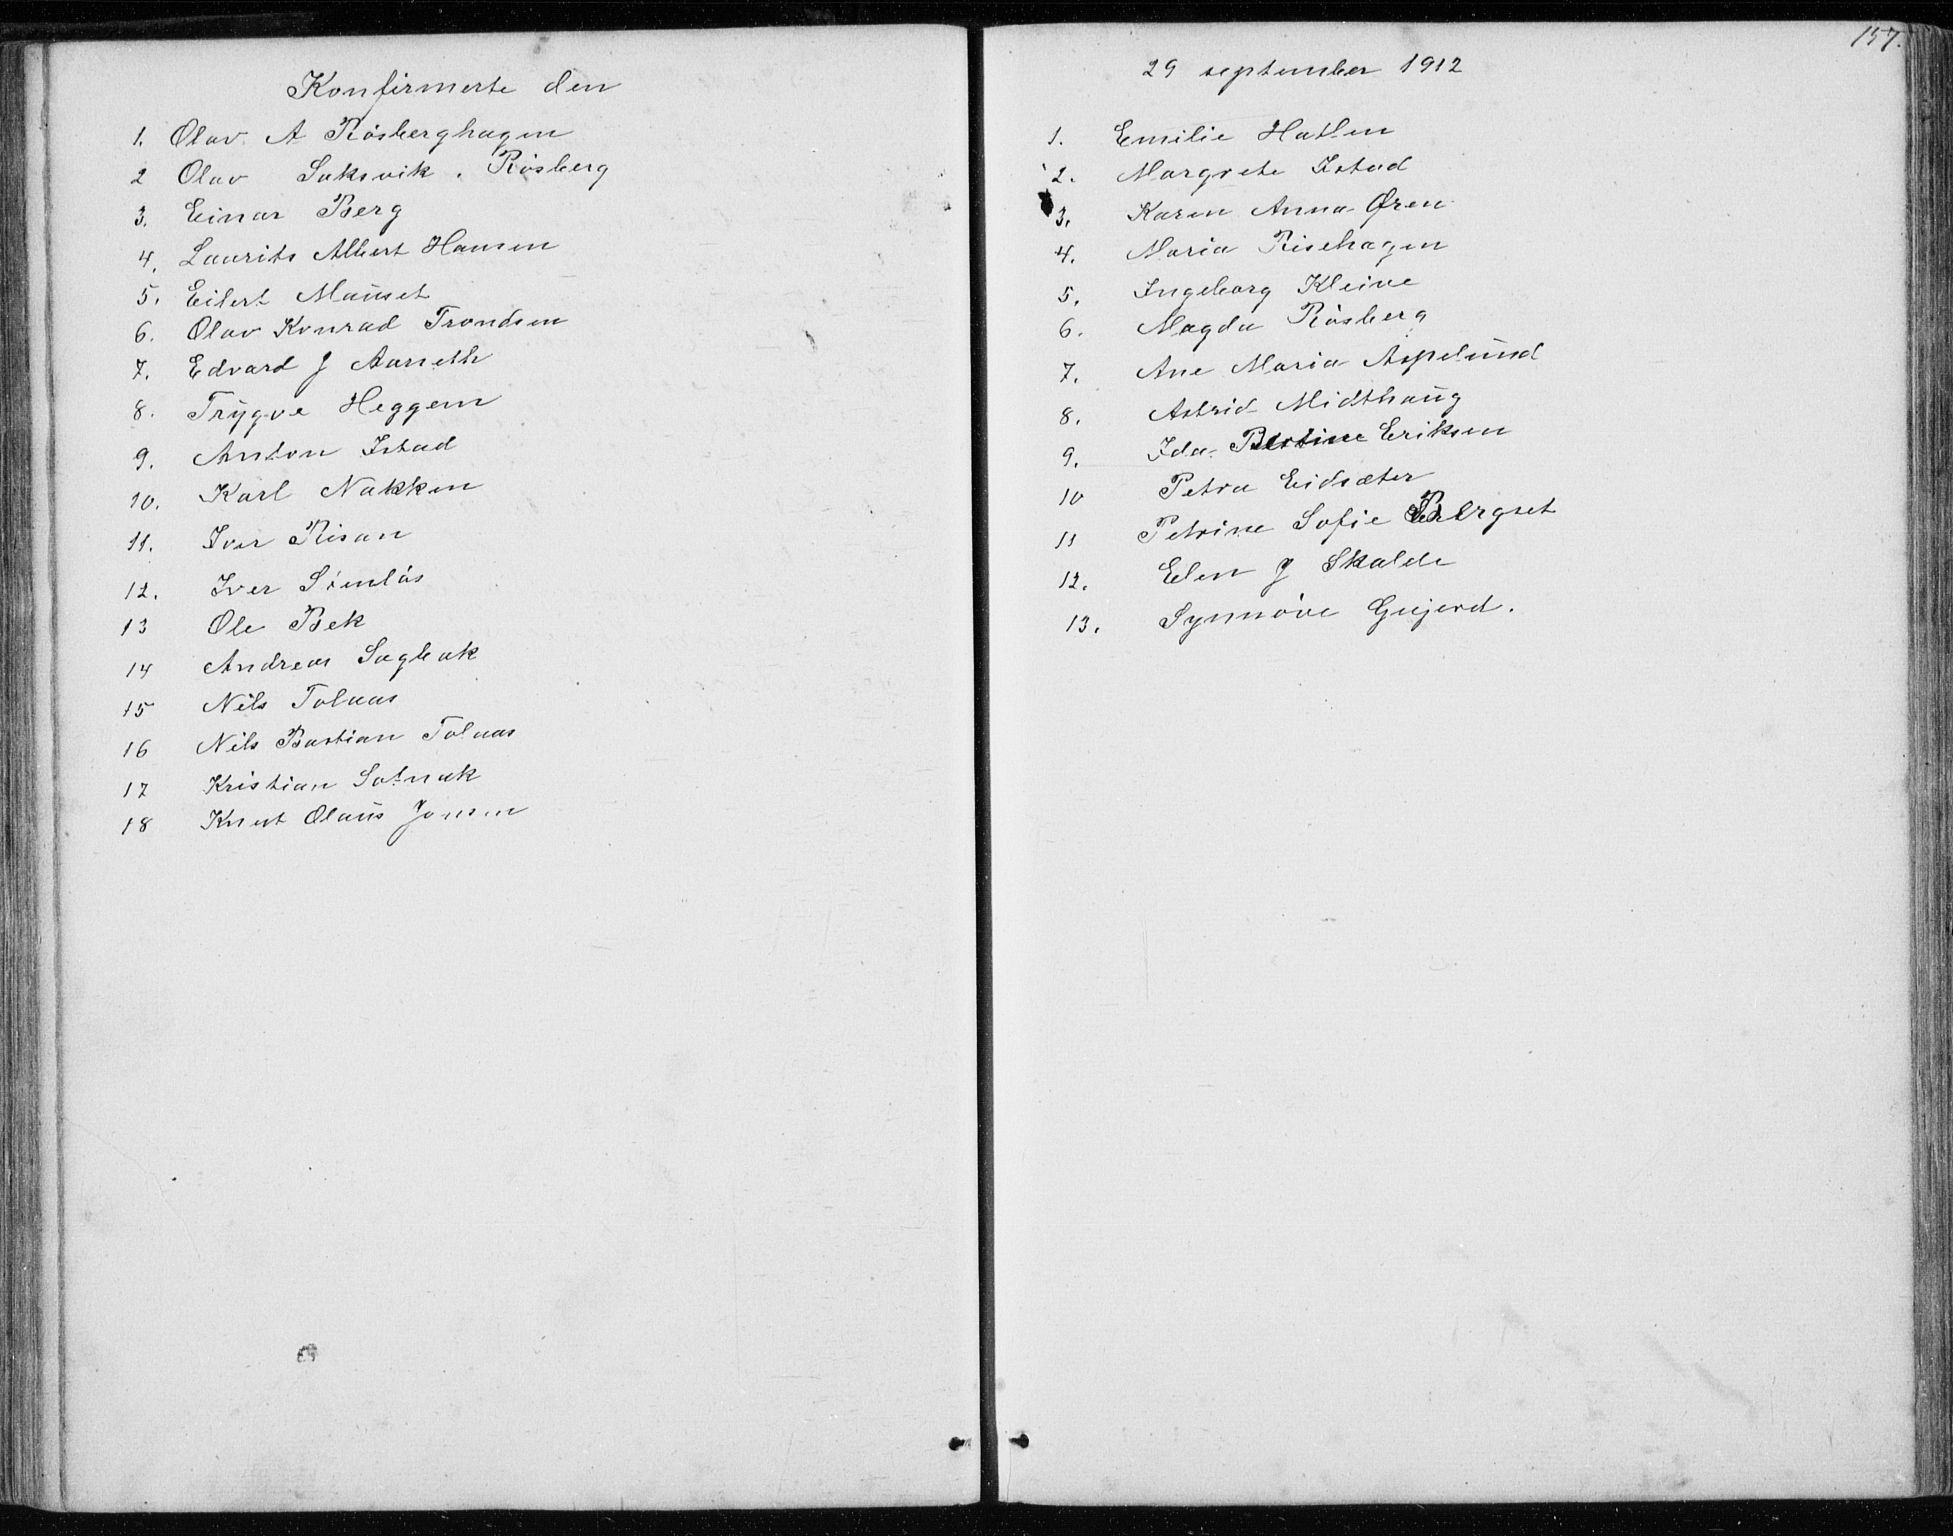 Konfirmerte den
1. Olav A Rösberghagen
2 Olav Saksvik. Rösberg
3. Einar Berg
4. Laurits Albert Hansen
5. Eilert Mauset
6. Olav Konrad Trondsen
7. Edvard J Aarseth
8. Trygve Heggem
9. Anton Istad
10. Karl Nakken
11. Iver Risan
12. Iver Simlös
13 Ole Bek
14 Andreas Sagbak
15 Nils Tolaas
16 Nils Bastian Tolaas
17 Kristian Sotnak
18 Knut Olaus Jonsen
157.
29 september 1912
1. Emilie Hatlen
2. Margrete Istad
3. Karen Anna Øren
4. Maria Risehagen
5. Ingeborg Kleive
6. Magda Rösberg
7. Ane Maria Aspelund
8. Astrid Midthaug
9. Ida Bertine Eriksen
10 Petra Eidsæter
11 Petrine Sofie Bergset
12. Elen J Skalde
13. Synnöve Gujerd.